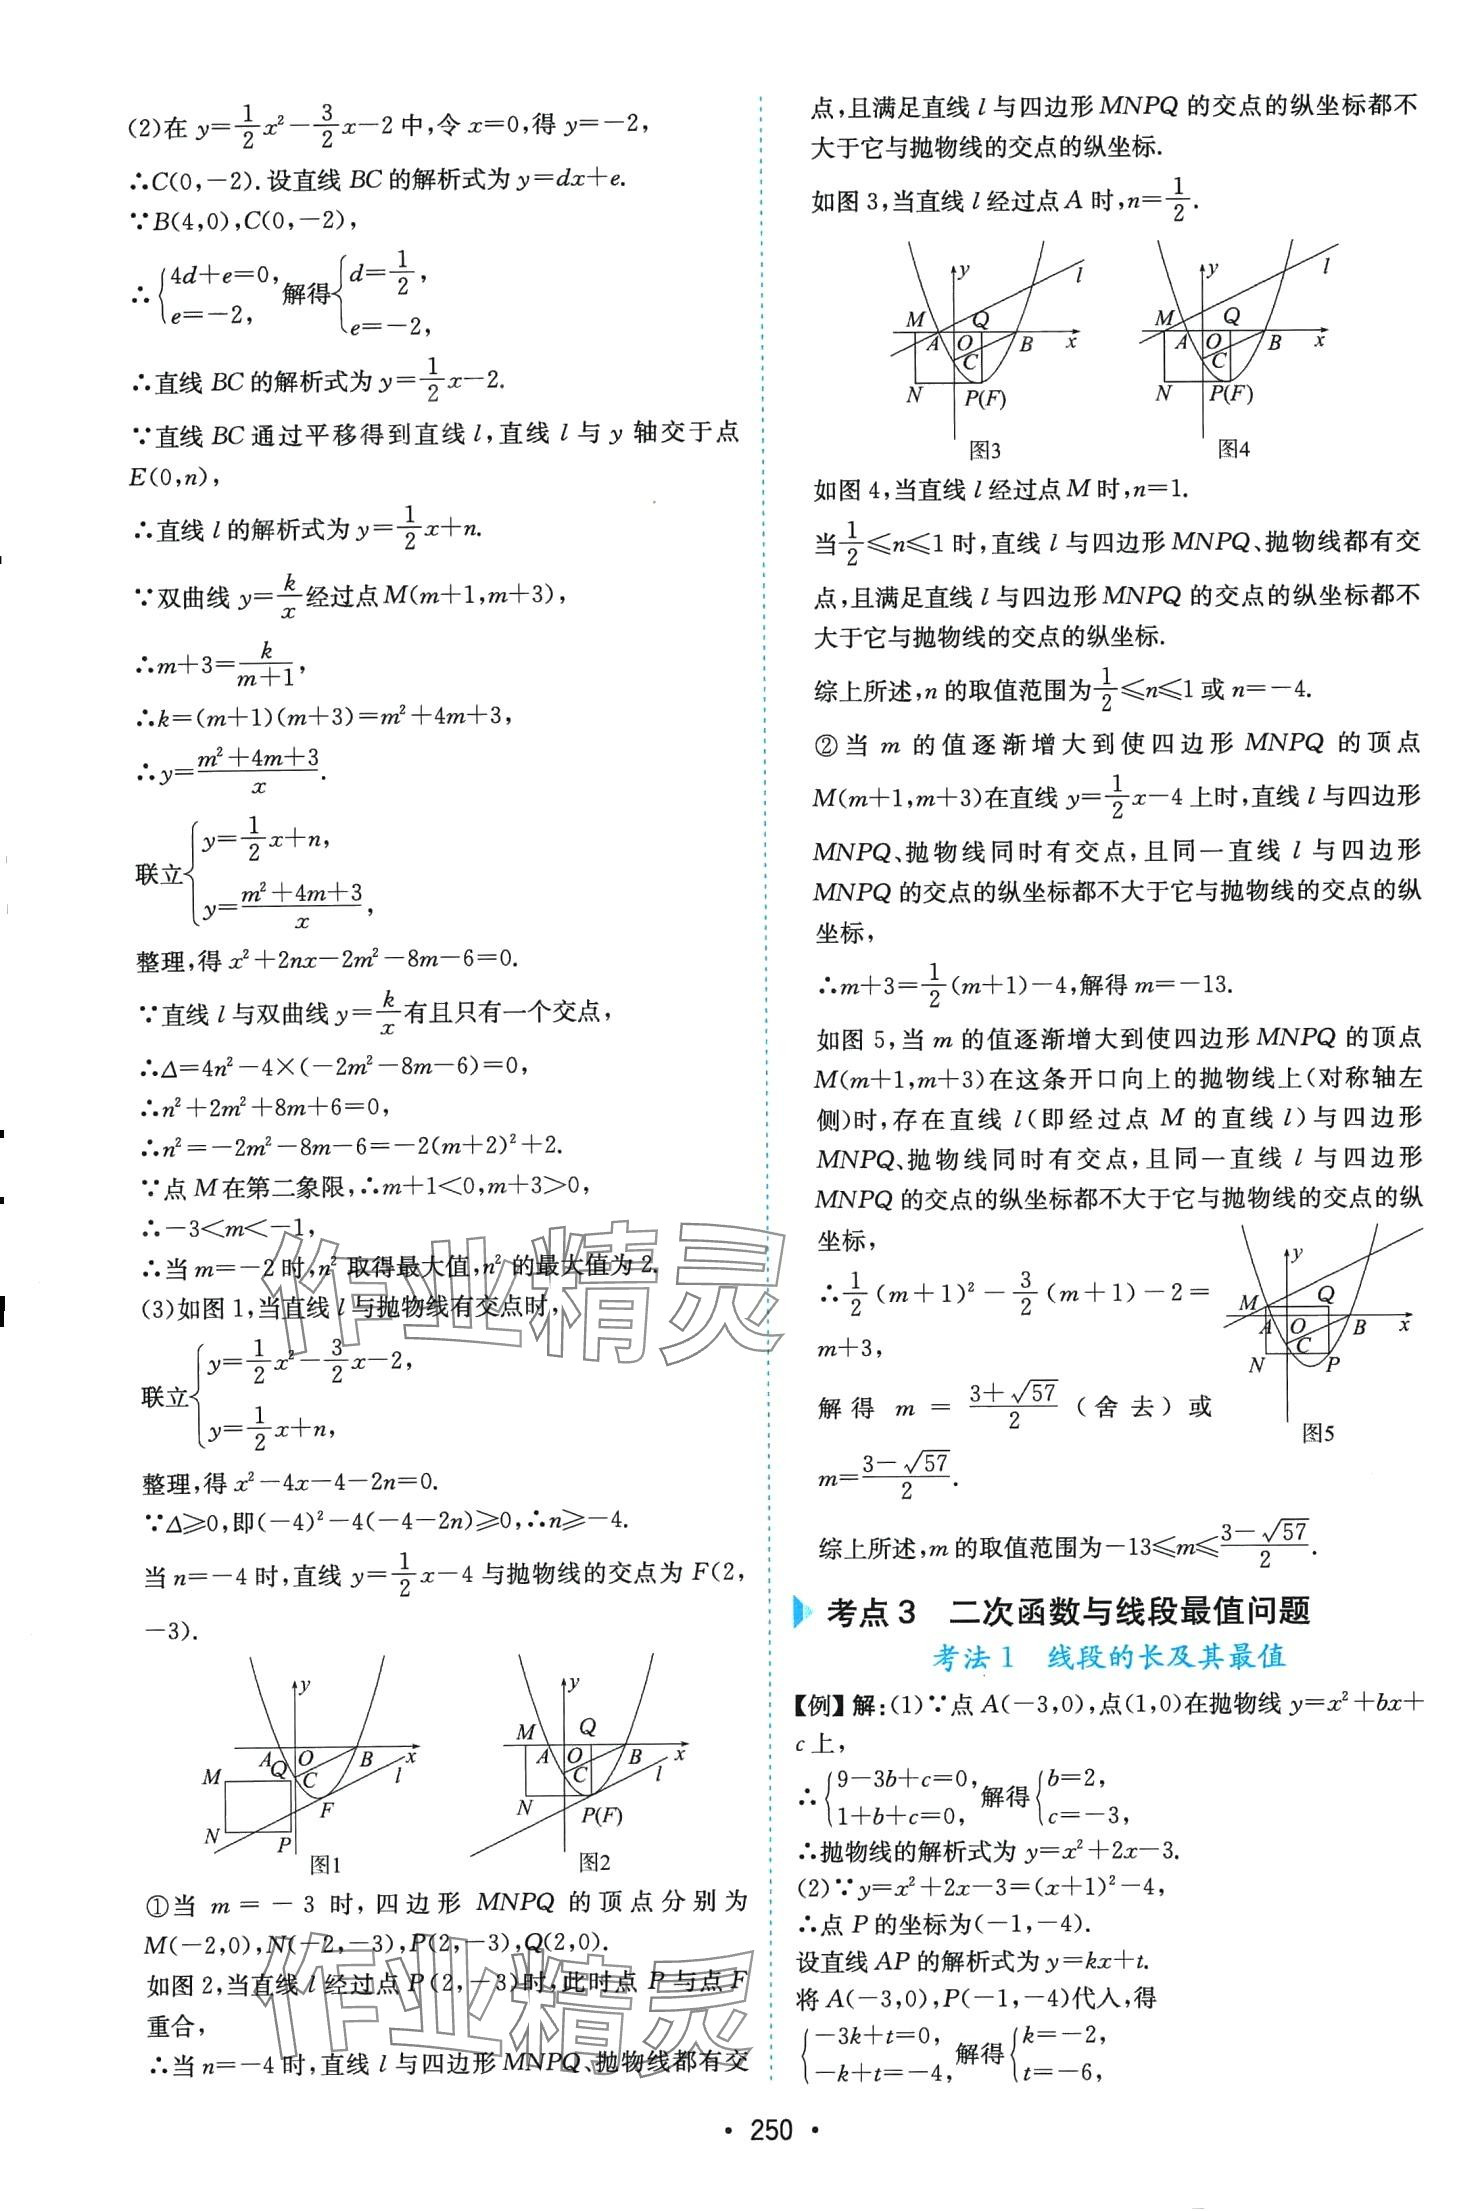 (2)在 y=1/2x²-3/2x-2中,令 x=0,得 y=-2,
∴C(0,-2).设直线 BC 的解析式为 y=dx+e.
∵B(4,0),C(0,-2),
∴{4d+e=0, e=-2, 解得{d=1/2, e=-2,
∴直线 BC 的解析式为 y=1/2x-2.
∵直线 BC 通过平移得到直线 l,直线 l 与 y 轴交于点
E(0,n),
∴直线 l 的解析式为 y=1/2x+n.
∵双曲线 y=k/x经过点 M(m+1,m+3),
∴m+3=k/(m+1),
∴k=(m+1)(m+3)=m²+4m+3,
∴y=(m²+4m+3)/x.
联立{y=1/2x+n, y=(m²+4m+3)/x,
整理,得 x²+2nx-2m²-8m-6=0.
∵直线 l 与双曲线 y=k/x有且只有一个交点,
∴Δ=4n²-4×(-2m²-8m-6)=0,
∴n²+2m²+8m+6=0,
∴n²=-2m²-8m-6=-2(m+2)²+2.
∵点 M 在第二象限,∴m+1<0,m+3>0,
∴-3<m<-1,
∴当 m=-2时,n²取得最大值,n²的最大值为2.
(3)如图1,当直线 l 与抛物线有交点时,
联立{y=1/2x²-3/2x-2, y=1/2x+n,
整理,得 x²-4x-4-2n=0.
∵Δ≥0,即(-4)²-4(-4-2n)≥0,∴n≥-4.
当 n=-4时,直线 y=1/2x-4与抛物线的交点为 F(2,
-3).
y
A O B x
M Q C l
F
N P
图1
y
M Q
A O B x
C l
N P(F)
图2
①当 m=-3 时,四边形 MNPQ 的顶点分别为
M(-2,0),N(-2,-3),P(2,-3),Q(2,0).
如图2,当直线 l 经过点 P(2,-3)时,此时点 P 与点 F
重合,
∴当 n=-4时,直线 l 与四边形 MNPQ、抛物线都有交
点,且满足直线 l 与四边形 MNPQ 的交点的纵坐标都不
大于它与抛物线的交点的纵坐标.
如图3,当直线 l 经过点 A 时,n=1/2.
y l
M Q
A O B x
C
N P(F)
图3
y l
M Q
A O B x
C
N P(F)
图4
如图4,当直线 l 经过点 M 时,n=1.
当1/2≤n≤1时,直线 l 与四边形 MNPQ、抛物线都有交
点,且满足直线 l 与四边形 MNPQ 的交点的纵坐标都不
大于它与抛物线的交点的纵坐标.
综上所述,n 的取值范围为1/2≤n≤1或 n=-4.
②当 m 的值逐渐增大到使四边形 MNPQ 的顶点
M(m+1,m+3)在直线 y=1/2x-4上时,直线 l 与四边形
MNPQ、抛物线同时有交点,且同一直线 l 与四边形
MNPQ 的交点的纵坐标都不大于它与抛物线的交点的纵
坐标,
∴m+3=1/2(m+1)-4,解得 m=-13.
如图5,当 m 的值逐渐增大到使四边形 MNPQ 的顶点
M(m+1,m+3)在这条开口向上的抛物线上(对称轴左
侧)时,存在直线 l(即经过点 M 的直线 l)与四边形
MNPQ、抛物线同时有交点,且同一直线 l 与四边形
MNPQ 的交点的纵坐标都不大于它与抛物线的交点的纵
坐标,
∴1/2(m+1)²-3/2(m+1)-2=
m+3,
解得 m=(3+√57)/2(舍去)或
m=(3-√57)/2.
y
M Q
A O B x
C
N P
图5
综上所述,m 的取值范围为-13≤m≤(3-√57)/2.
考点3 二次函数与线段最值问题
考法1 线段的长及其最值
【例】解:(1)∵点 A(-3,0),点(1,0)在抛物线 y=x²+bx+
c上,
∴{9-3b+c=0, 1+b+c=0, 解得{b=2, c=-3,
∴抛物线的解析式为 y=x²+2x-3.
(2)∵y=x²+2x-3=(x+1)²-4,
∴点 P 的坐标为(-1,-4).
设直线 AP 的解析式为 y=kx+t.
将 A(-3,0),P(-1,-4)代入,得
{-3k+t=0, -k+t=-4, 解得{k=-2, t=-6,
作业精灵
作业精灵
·250·